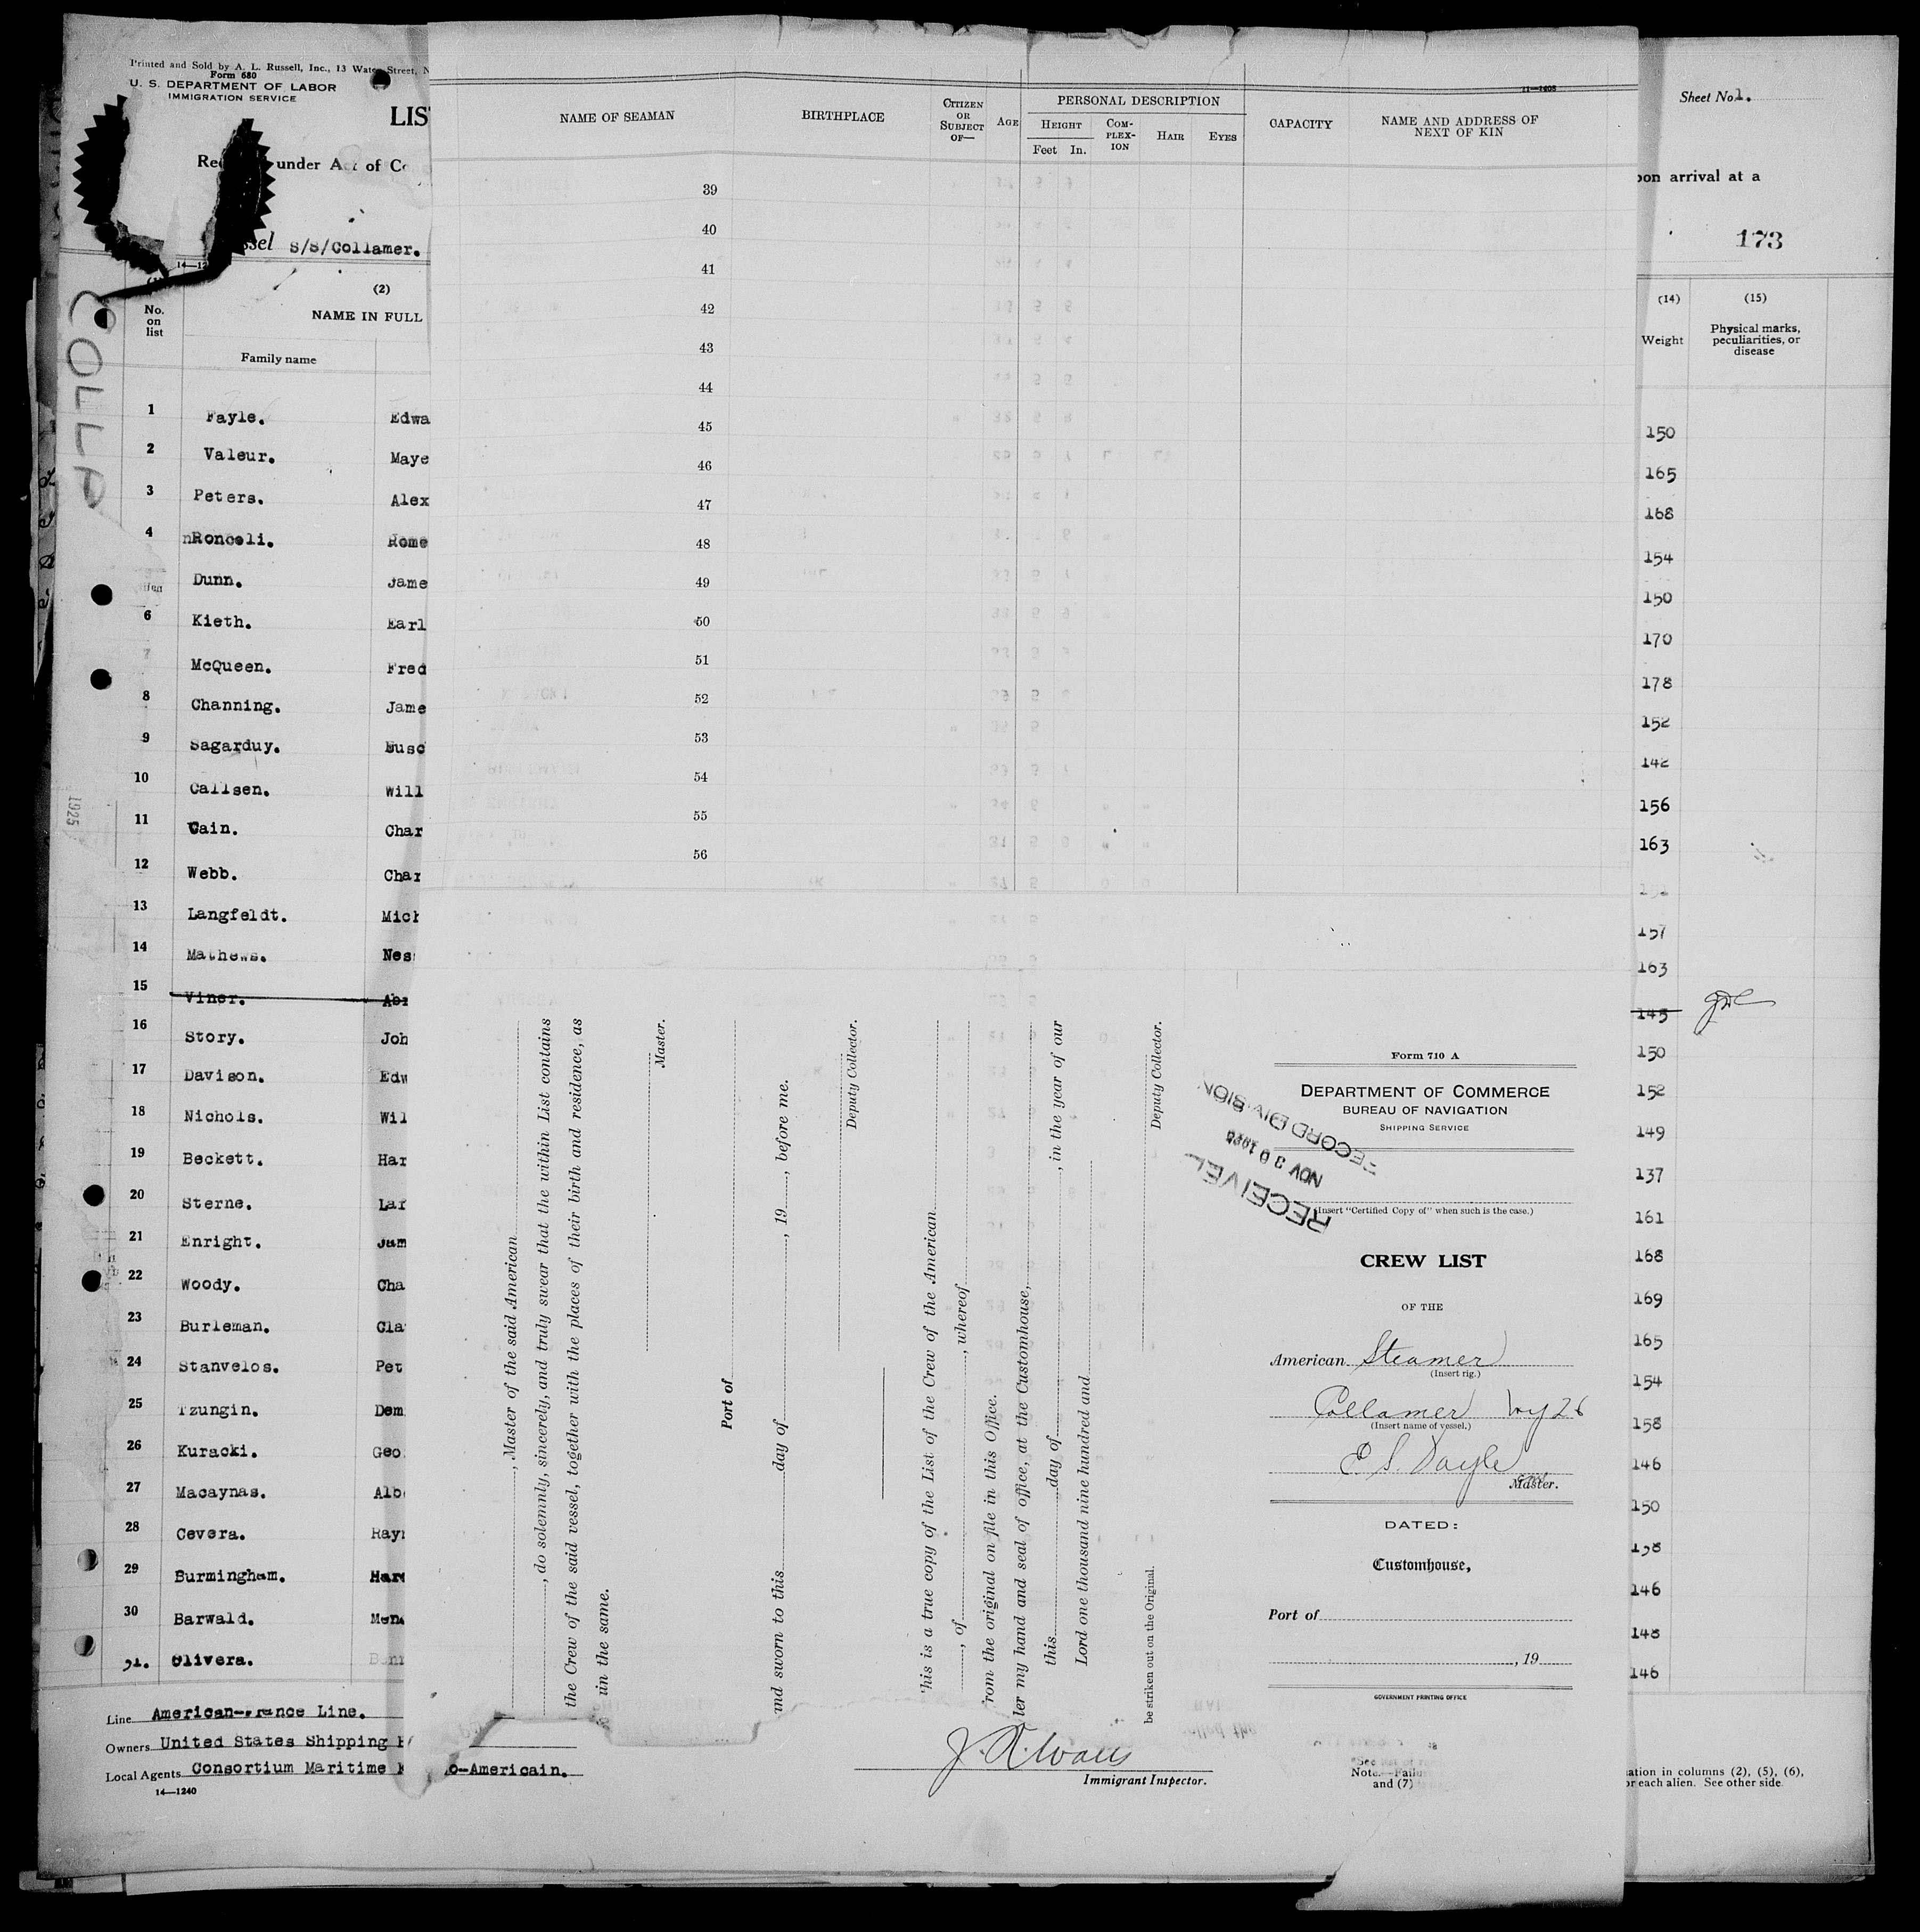 Printed and Sold by A. L. Russell, Inc., 13 Water Street, N
Form 680
U. S. DEPARTMENT OF LABOR
IMMIGRATION SERVICE
LIS
under Act of Co
S/S/Collamer.
COLLA
1925
(2)
No. on list
NAME IN FULL
Family name
1 Fayle. Edwa
2 Valeur. Maye
3 Peters. Alex
4 nRonceli. Rome
Dunn. Jame
6 Kieth. Earl
7 McQueen. Fred
8 Channing. Jame
9 Sagarduy. Eusc
10 Callsen. Will
11 Cain. Char
12 Webb. Char
13 Langfeldt. Mich
14 Mathews. Nes
15 Viner. Abr
16 Story. Joh
17 Davison. Edw
18 Nichols. Wil
19 Beckett. Har
20 Sterne. Lar
21 Enright. Jam
22 Woody. Cha
23 Burleman. Cla
24 Stanvelos. Pet
25 Tzungin. Dem
26 Kuracki. Geo
27 Macaynas. Alb
28 Cevera. Ray
29 Burmingham. Har
30 Barwald. Men
31. Olivera.
Line American-France Line.
Owners United States Shipping
Local Agents Consortium Maritime
o-Americain.
14—1240
11—1408
NAME OF SEAMAN
BIRTHPLACE
CITIZEN OR SUBJECT OF—
AGE
PERSONAL DESCRIPTION
HEIGHT
Feet In.
COM-PLEX-ION
HAIR
EYES
CAPACITY
NAME AND ADDRESS OF NEXT OF KIN
39
40
41
42
43
44
45
46
47
48
49
50
51
52
53
54
55
56
, Master of the said American
, do solemnly, sincerely, and truly swear that the within List contains
the Crew of the said vessel, together with the places of their birth and residence, as
in the same.
Master.
Port of
nd sworn to this day of , 19 , before me.
Deputy Collector.
his is a true copy of the List of the Crew of the American
, of , whereof
rom the original on file in this Office.
er my hand and seal of office, at the Customhouse,
this day of , in the year of our
Lord one thousand nine hundred and
Deputy Collector.
be striken out on the Original.
J. R. Watts
Immigrant Inspector.
RECEIVED
NOV 30 1925
RECORD DIVISION
Form 710 A
DEPARTMENT OF COMMERCE
BUREAU OF NAVIGATION
SHIPPING SERVICE
(Insert "Certified Copy of" when such is the case.)
CREW LIST
OF THE
American Steamer
(Insert rig.)
Collamer
(Insert name of vessel.)
E S. Dayle
Master.
DATED:
Customhouse,
Port of
, 19
GOVERNMENT PRINTING OFFICE
Note.—Failu
and (7)
Sheet No. 1.
pon arrival at a
173
(14)
Weight
(15)
Physical marks, peculiarities, or disease
150
165
168
154
150
170
178
152
142
156
163
157
163
145
150
152
149
137
161
168
169
165
154
158
146
150
158
146
148
146
ation in columns (2), (5), (6),
or each alien. See other side.